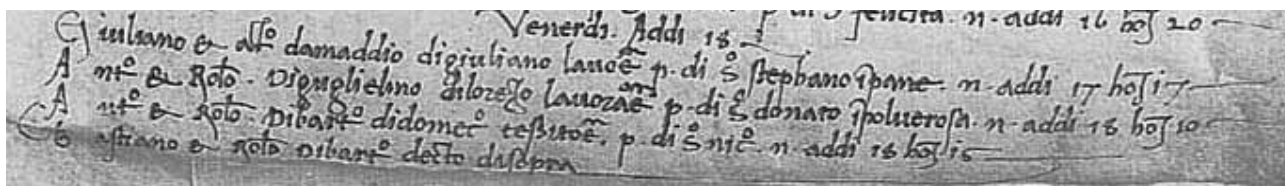 p. di S felicita. n. addi 16 hoȝ 20
Venerdi. Addi 18.
Giuliano & Alt° damaddio digiuliano lavoē p. di S° stephano ipane. n. addi 17 hoȝ 17
Ant° & Rol°. Diguglielmo dilorēzo lavorāē p. di S° donato ipolverosa. n. addi 18 hoȝ 10
Ant° & Rol°. Dibart° didomec° tessitoē. p. di S° nic°. n. addi 18 hoȝ 16
Bastiano & Rol° Dibart° decto disopra